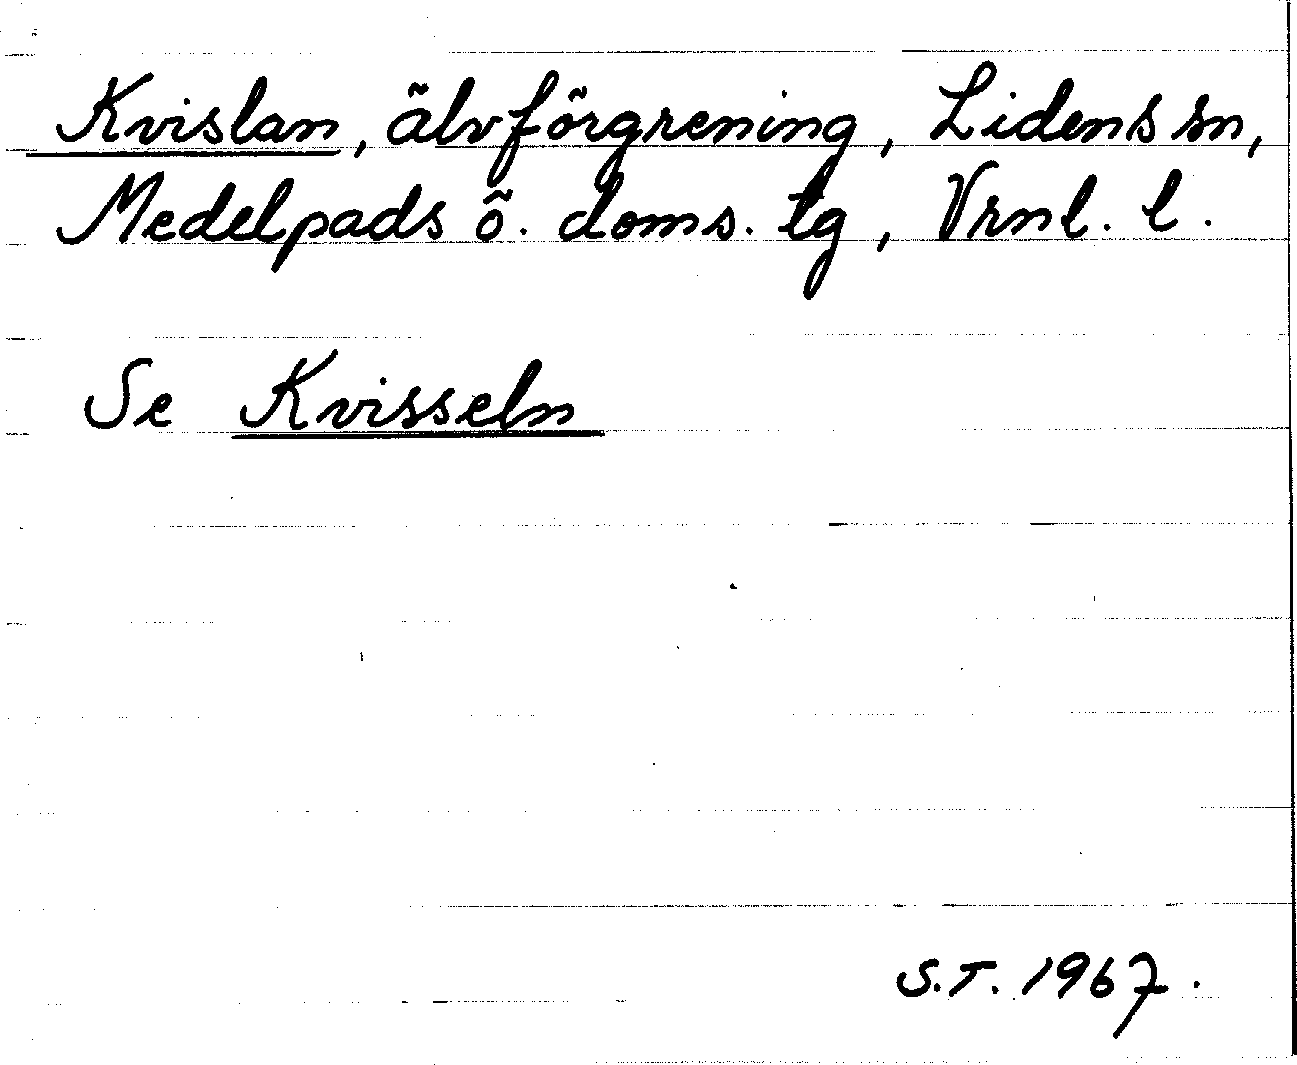 Kvislan, älvförgrening, Lidens sn,
Medelpads ö. doms. tg, Vrnl. l.
Se Kvisseln
S.T. 1967.